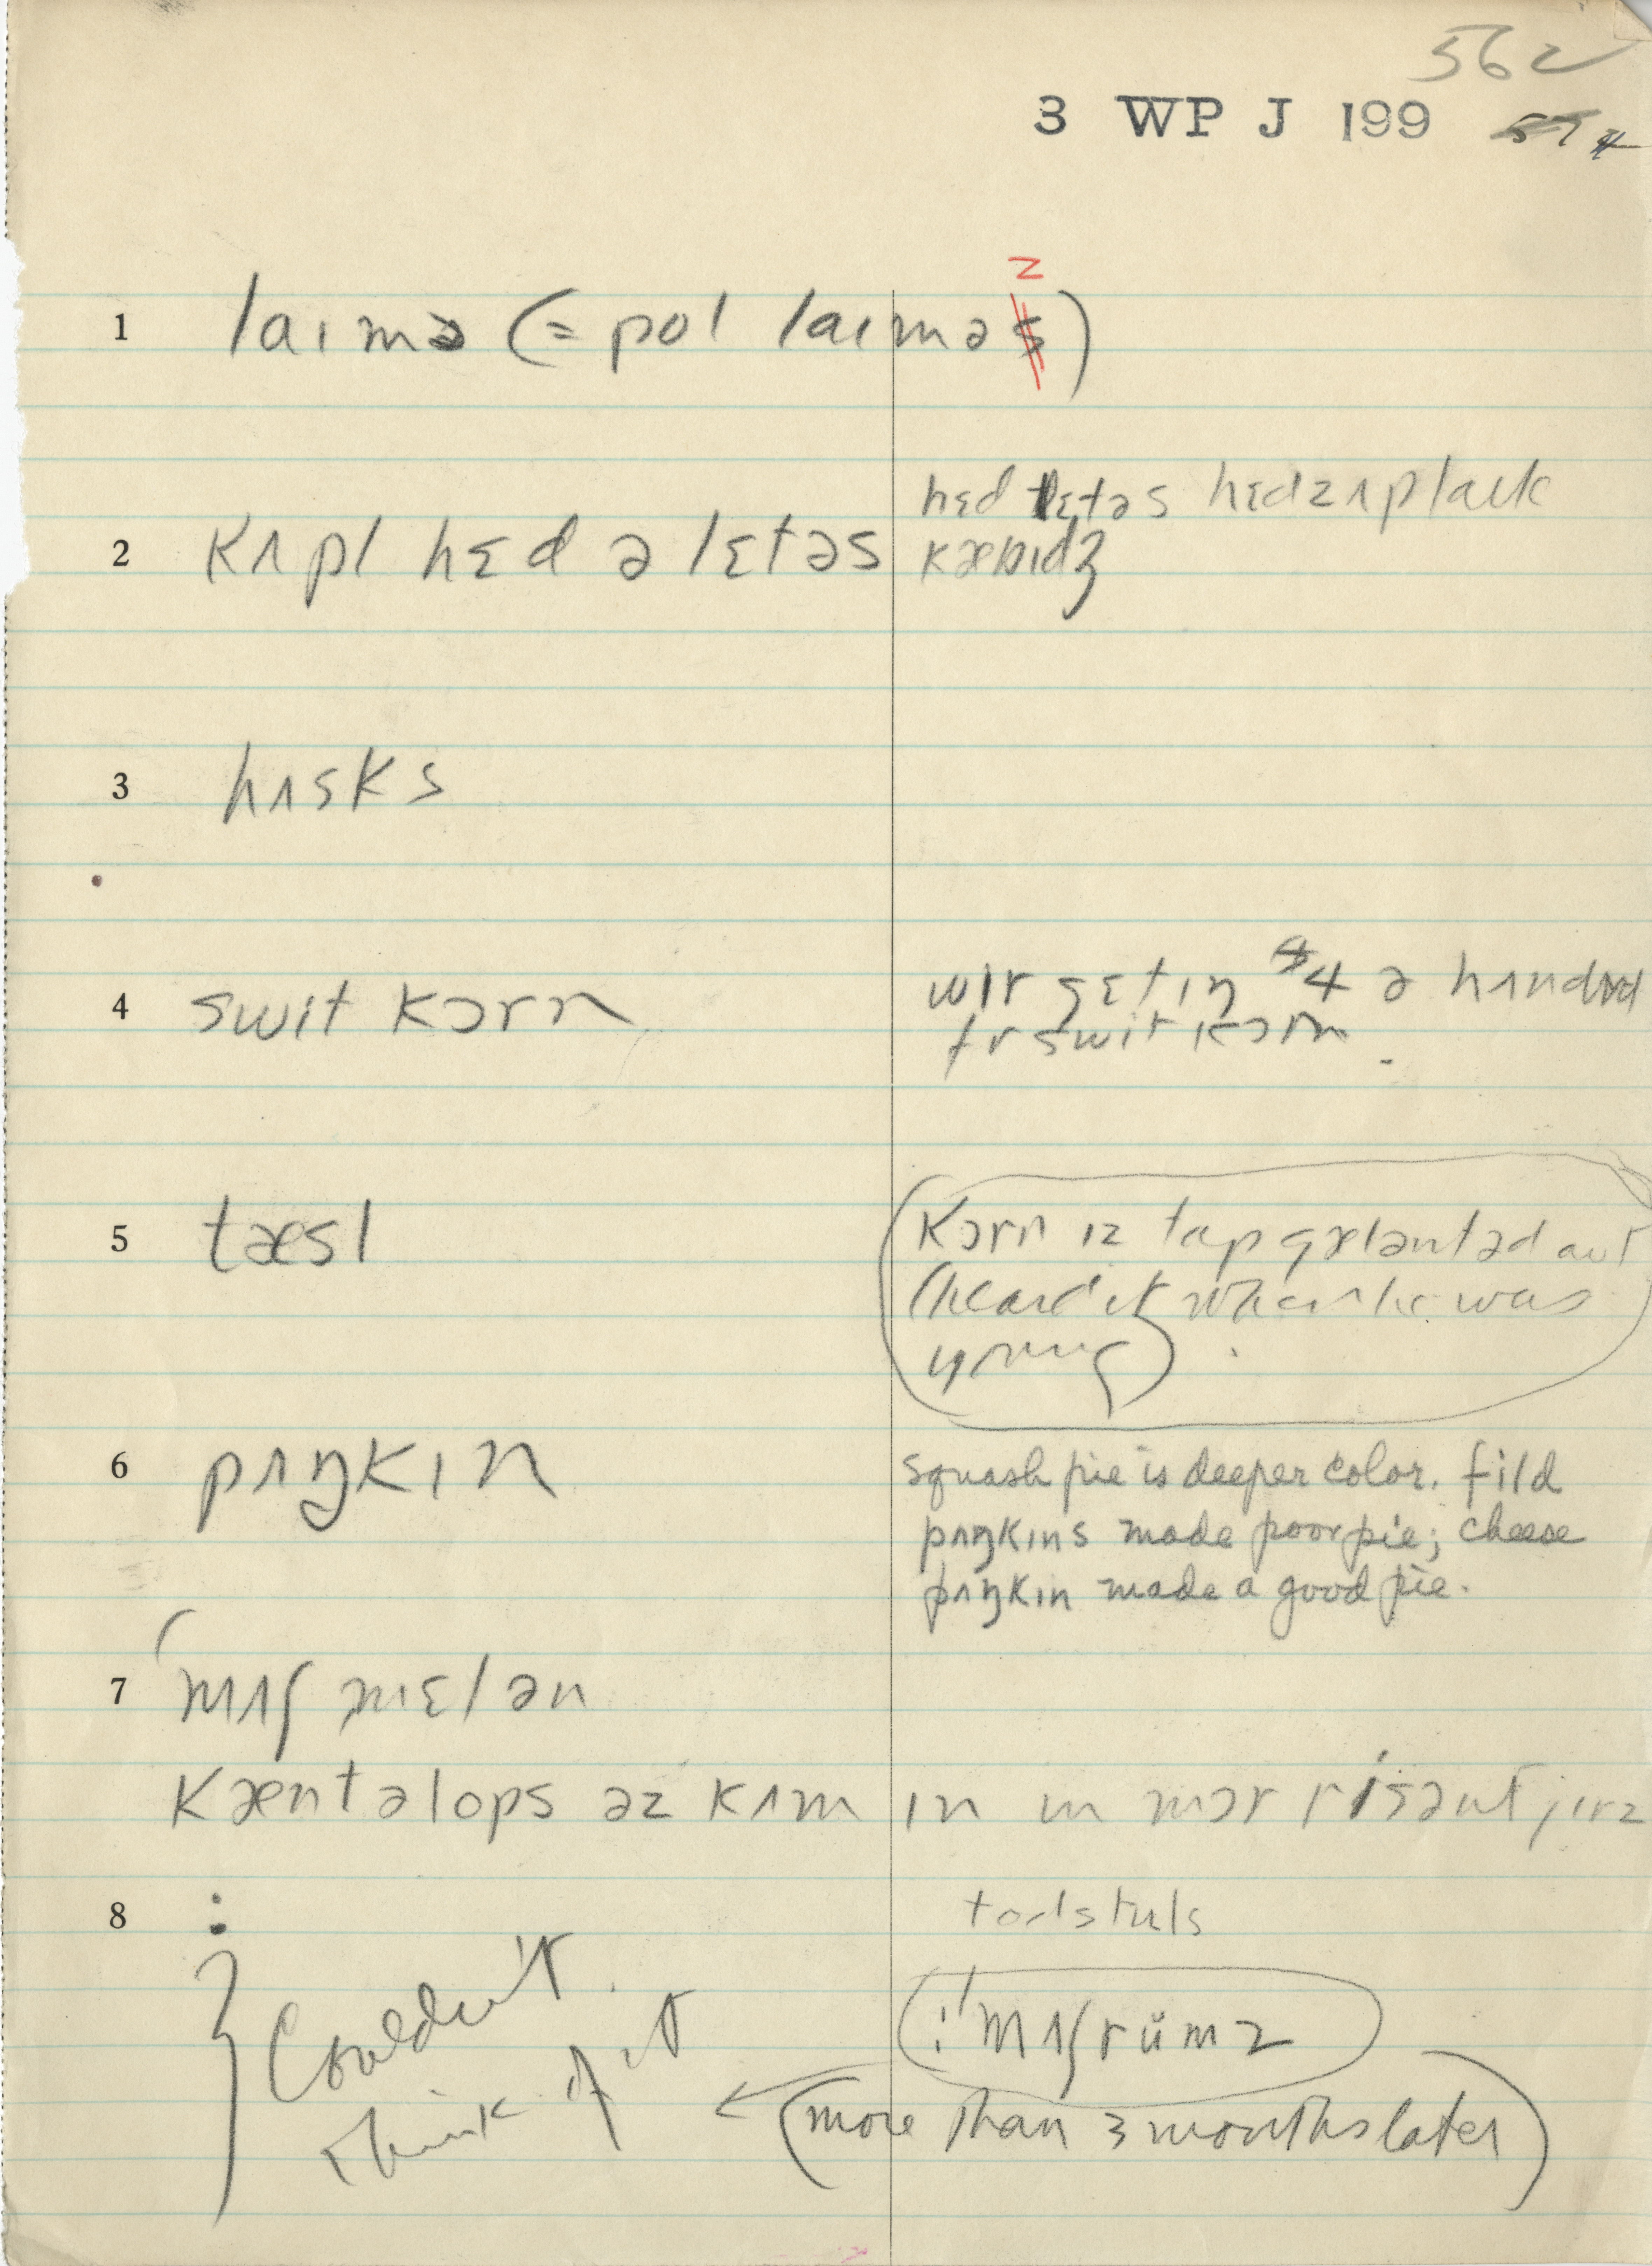 562
3 WP J 199 574
z
1 laɪmə (= pol laɪməs)
hɛd lɛtəs hɛdz ʌp laɪk
2 kʌpl hɛd ə lɛtəs kæbɪdʒ
3 hʌsks
4 swit kɔrn wɪr gɛtɪŋ $4 a hʌndrəd
fr swit kɔrn
5 tæsl kɔrn ɪz tap gælantəd aut
(heard it when he was
young)
6 pʌŋkɪn squash pie is deeper color. fild
pʌŋkɪns made poor pie; cheese
pʌŋkɪn made a good pie.
7 mʌʃmɛlən
kæntəlops əz kʌm ɪn ɪn mɔr risənt jɪrz
8 : todstuls
Couldn't
think of it
:! mʌʃrümz
(more than 3 months later)